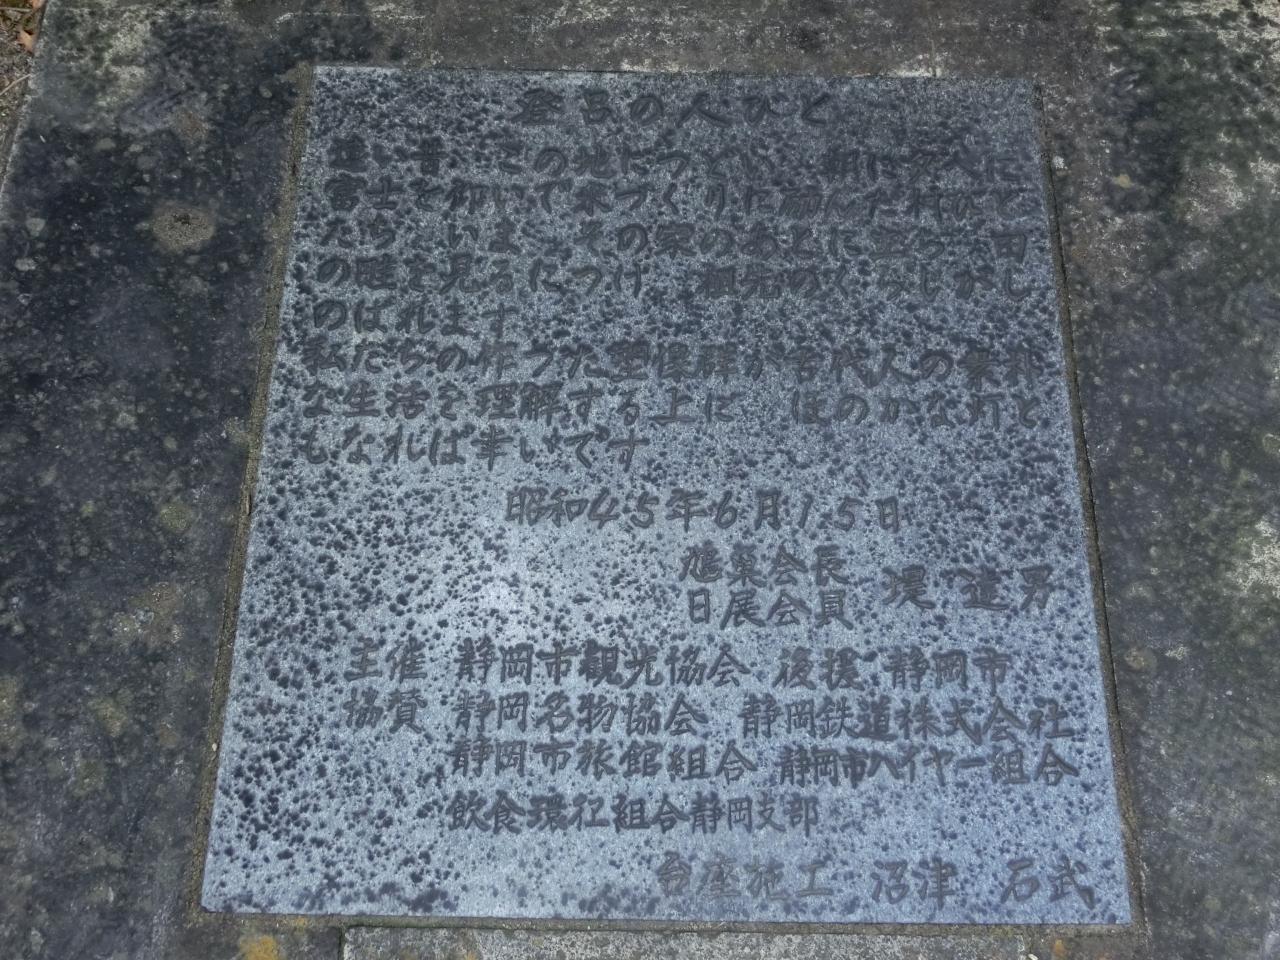 登呂の人びと
遠い昔 この地につどい 朝に夕べに
富士を仰いで米づくりに励んだ村びと
たち いま その家のあとに立ち 田
の畦を見るにつけ 祖先のくらしがし
のばれます
私たちの作った塑像碑が古代人の素朴
な生活を理解する上に ほのかな灯と
もなれば幸いです
昭和45年6月15日
旭巣会長
日展会員 堤達男
主催 静岡市観光協会 後援 静岡市
協賛 静岡名物協会 静岡鉄道株式会社
静岡市旅館組合 静岡市ハイヤー組合
飲食環組合静岡支部
台座施工 沼津 石武